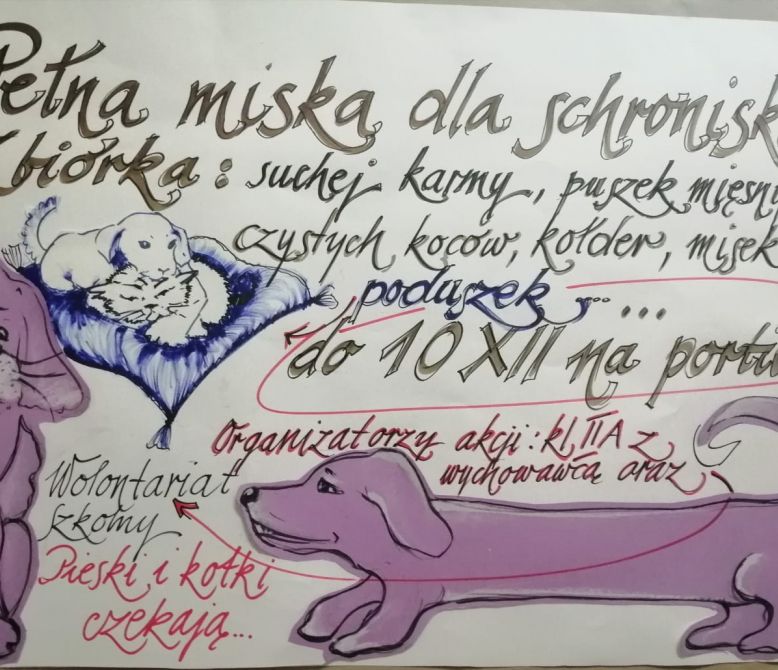 Pełna miska dla schronisk
Zbiórka: suchej karmy, puszek mięsn
czystych koców, kołder, misek
poduszek, ... ...
do 10 XII na porti
Organizatorzy akcji: kl. IIA z
wychowawcą oraz
Wolontariat
szkolny
Pieski i kotki
czekają...